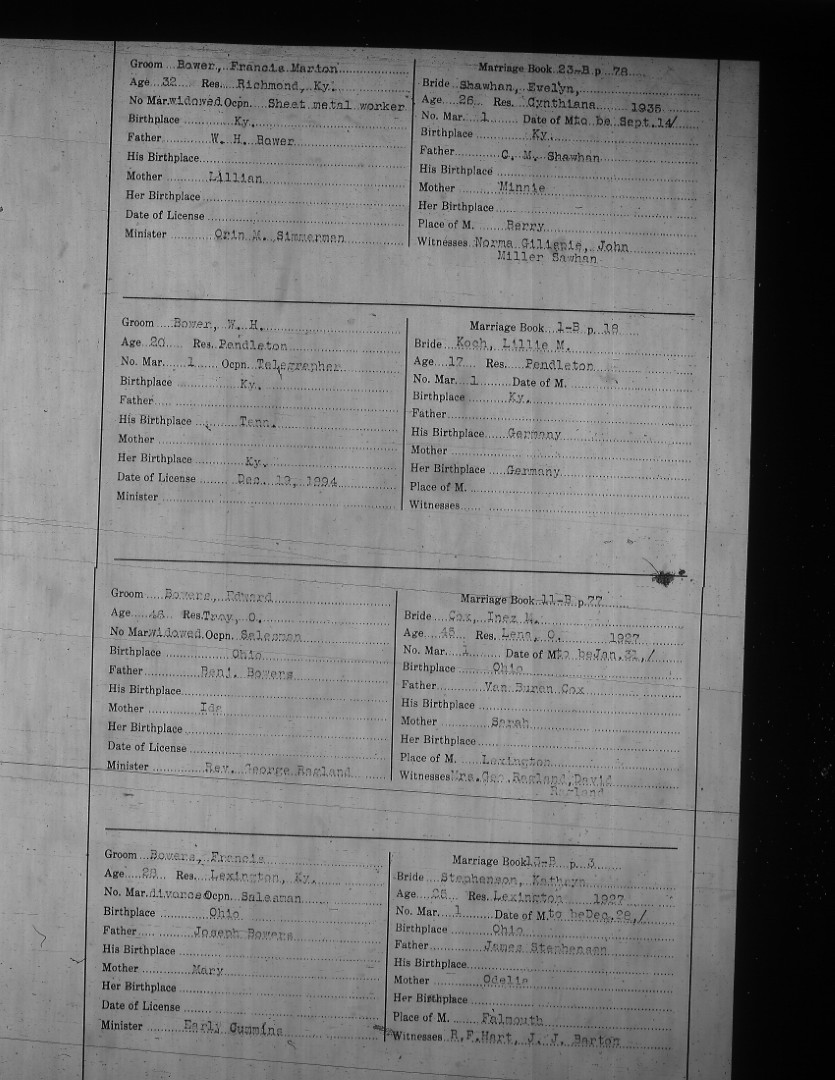 Groom Bower, Francis Marion
Age 32 Res. Richmond, Ky.
No Mar. widowed Ocpn. Sheet metal worker
Birthplace Ky.
Father W. H. Bower
His Birthplace
Mother Lillian
Her Birthplace
Date of License
Minister Orin M. Simmerman
Marriage Book 23-B p 78
Bride Shawhan, Evelyn,
Age 26 Res. Cynthiana 1935
No. Mar. 1 Date of M to be Sept.14/
Birthplace Ky.
Father C. M. Shawhan
His Birthplace
Mother Minnie
Her Birthplace
Place of M. Berry
Witnesses Norma Gillispie, John
Miller Sawhan
Groom Bower, W. H.
Age 20 Res. Pendleton
No. Mar. 1 Ocpn. Telegrapher
Birthplace Ky.
Father
His Birthplace Tenn.
Mother
Her Birthplace Ky.
Date of License Dec. 19, 1894
Minister
Marriage Book 1-B p. 18
Bride Koch, Lillie M.
Age 17 Res. Pendleton
No. Mar. 1 Date of M.
Birthplace Ky.
Father
His Birthplace Germany
Mother
Her Birthplace Germany
Place of M.
Witnesses
Groom Bowers, Edward
Age 48 Res. Troy, O.
No Mar. widowed Ocpn. Salesman
Birthplace Ohio
Father Benj. Bowers
His Birthplace
Mother Ida
Her Birthplace
Date of License
Minister Rev. George Ragland
Marriage Book 11-B p. 77
Bride Cox, Inez M.
Age 45 Res. Lena, O. 1927
No. Mar. 1 Date of M to be Jan.31,/
Birthplace Ohio
Father Van Buren Cox
His Birthplace
Mother Sarah
Her Birthplace
Place of M. Lexington
Witnesses Mrs. Geo. Ragland, David
Ragland
Groom Bowers, Francis
Age 29 Res. Lexington, Ky.
No. Mar. divorced Ocpn. Salesman
Birthplace Ohio
Father Joseph Bowers
His Birthplace
Mother Mary
Her Birthplace
Date of License
Minister Early Cummins
Marriage Book 13-B p. 3
Bride Stephenson, Kathryn
Age 26 Res. Lexington 1927
No. Mar. 1 Date of M. to be Dec.28,/
Birthplace Ohio
Father James Stephenson
His Birthplace
Mother Odelia
Her Birthplace
Place of M. Falmouth
Witnesses R.F.Hart, J. J. Barton